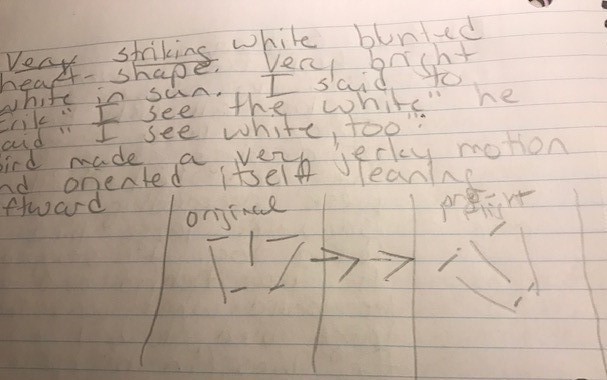 Very striking white blunted
heart-shape. Very bright
white in sun. I said to
Erik "I see the white" he
said "I see white, too".
bird made a very jerky motion
and oriented itself leaning
leftward
original